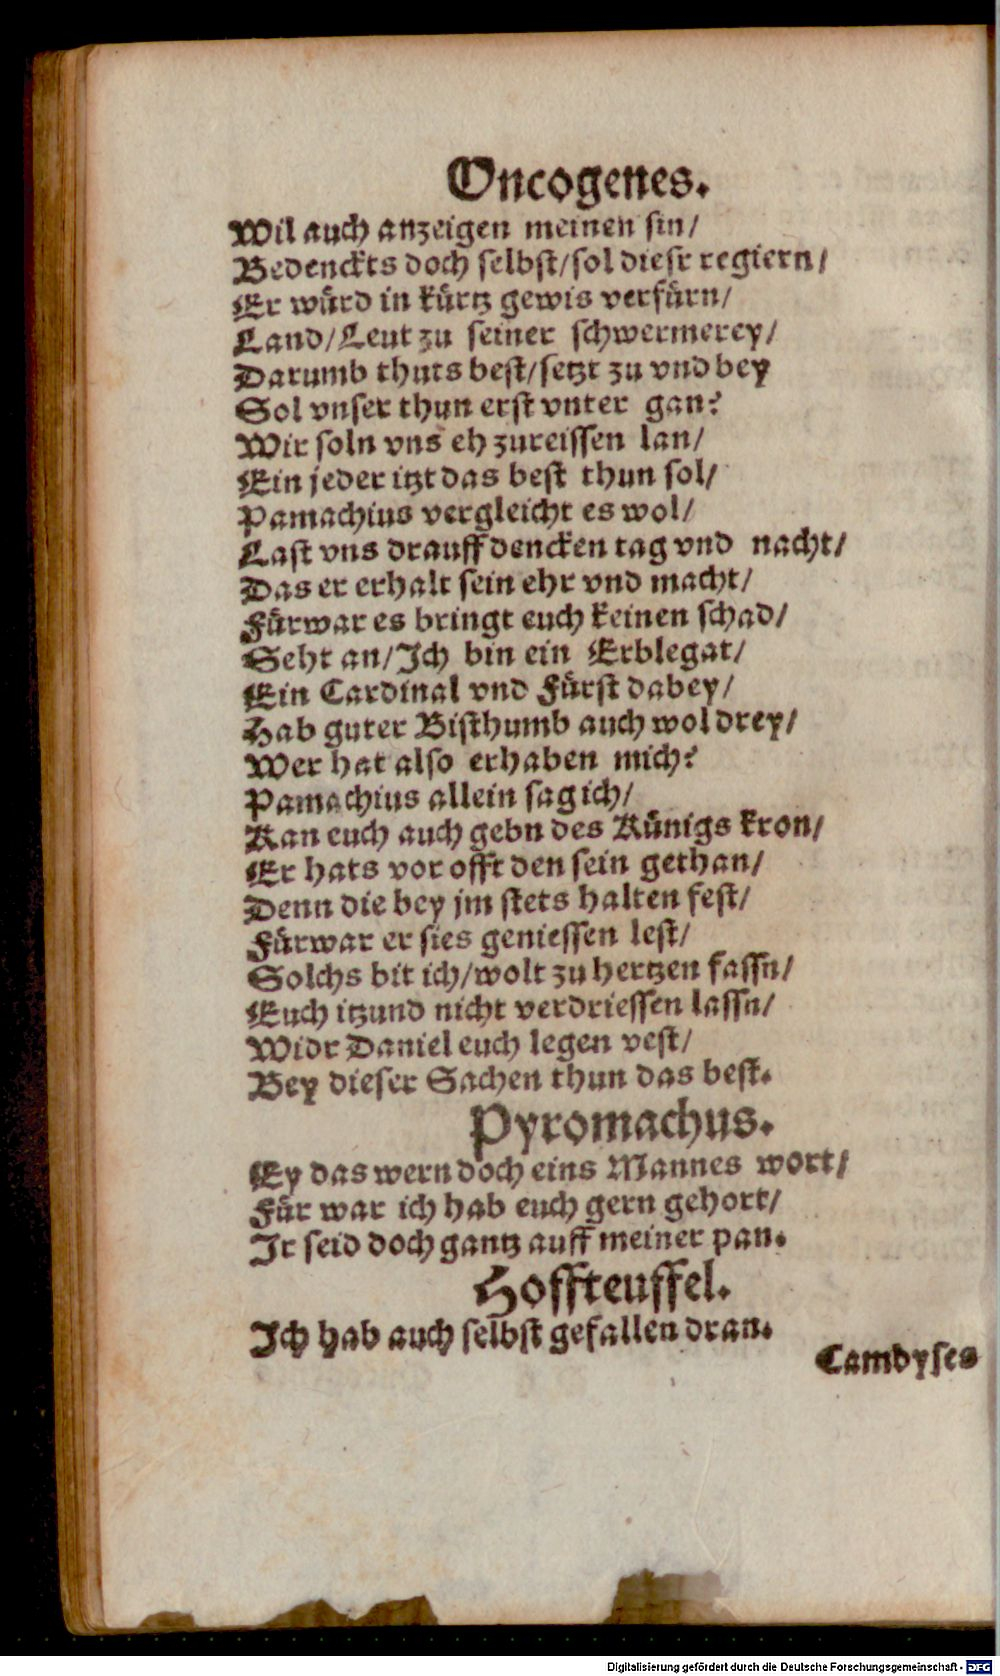 Oncogenes.
Wil auch anzeigen meinen sin/
Bedenckts doch selbst/sol diesr regiern/
Er würd in kürtz gewis verfürn/
Land/Leut zu seiner schwermerey/
Darumb thuts best/setzt zu vnd bey
Sol vnser thun erst vnter gan?
Wir soln vns eh zureissen lan/
Ein jeder itzt das best thun sol/
Pamachius vergleicht es wol/
Last vns drauff dencken tag vnd nacht/
Das er erhalt sein ehr vnd macht/
Fürwar es bringt euch keinen schad/
Seht an/Ich bin ein Erblegat/
Ein Cardinal vnd Fürst dabey/
Hab guter Bisthumb auch wol drey/
Wer hat also erhaben mich?
Pamachius allein sag ich/
Kan euch auch gebn des Künigs kron/
Er hats vor offt den sein gethan/
Denn die bey jm stets halten fest/
Fürwar er sies geniessen lest/
Solchs bit ich/wolt zu hertzen fassn/
Euch itzund nicht verdriessen lassn/
Widr Daniel euch legen vest/
Bey dieser Sachen thun das best.
Pyromachus.
Ey das wern doch eins Mannes wort/
Für war ich hab euch gern gehort/
Ir seid doch gantz auff meiner pan.
Hoffteuffel.
Ich hab auch selbst gefallen dran.
Cambyses
Digitalisierung gefördert durch die Deutsche Forschungsgemeinschaft - DFG